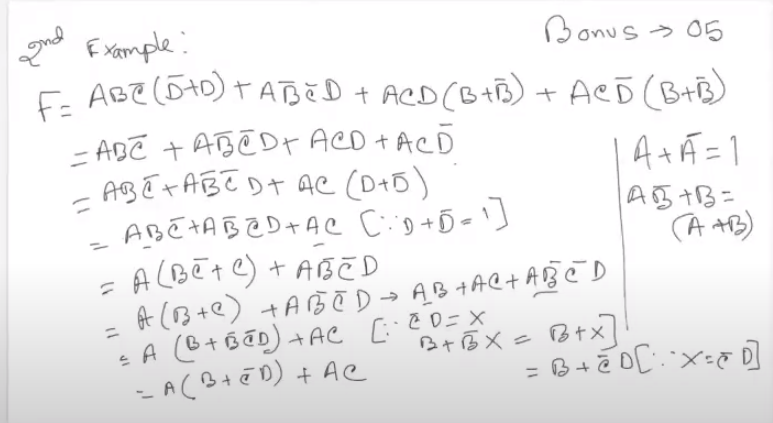 2nd Example:
Bonus → 05
F = ABC̄(D̄+D) + AB̄C̄D + ACD(B+B̄) + ACD̄(B+B̄)
= ABC̄ + AB̄C̄D + ACD + ACD̄
= ABC̄ + AB̄C̄D + AC(D+D̄)
= ABC̄ + AB̄C̄D + AC [∵ D+D̄=1]
= A(BC̄+C) + AB̄C̄D
= A(B+C) + AB̄C̄D → AB+AC+AB̄C̄D
= A(B+B̄C̄D)+AC [∵ C̄D=X
B+B̄X = B+X]
= A(B+C̄D) + AC
= B+C̄D[∵X=C̄D]
A+Ā=1
AB̄+B=
(A+B)